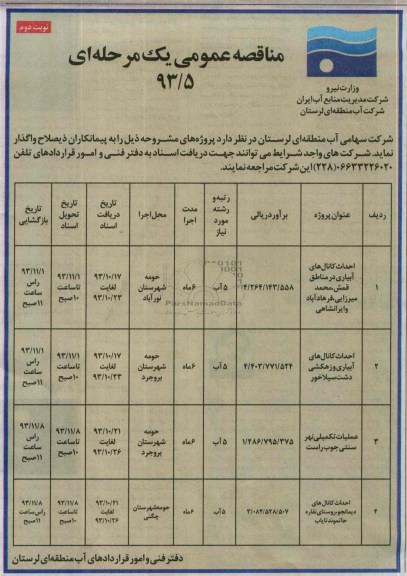 نوبت دوم
مناقصه عمومی یک مرحله‌ای
۹۳/۵
وزارت نیرو
شرکت مدیریت منابع آب ایران
شرکت آب منطقه‌ای لرستان
شرکت سهامی آب منطقه‌ای لرستان در نظر دارد پروژه‌های مشروحه ذیل را به پیمانکاران ذیصلاح واگذار
نماید. شرکت های واجد شرایط می توانند جهت دریافت اسناد به دفتر فنی و امور قراردادهای تلفن
۰۶۶۳۳۲۲۶۰۲۰ (۲۲۸) این شرکت مراجعه نمایند.
ردیف
عنوان پروژه
برآورد ریالی
رتبه و رشته مورد نیاز
مدت اجرا
محل اجرا
تاریخ دریافت اسناد
تاریخ تحویل اسناد
تاریخ بازگشایی
۱
احداث کانال‌های
آبیاری در مناطق
قمش، محمد
میرزایی، فرهادآباد
و ایرانشاهی
۴/۲۶۴/۱۴۳/۵۵۸
۵ آب
۶ ماه
حومه
شهرستان
نورآباد
۹۳/۱۰/۱۷
لغایت
۹۳/۱۰/۲۳
۹۳/۱۱/۱
تا ساعت
۱۰ صبح
۹۳/۱۱/۱
راس
ساعت
۱۱ صبح
۲
احداث کانال‌های
آبیاری و زهکشی
دشت سیلاخور
۴/۴۰۳/۷۷۱/۵۲۴
۵ آب
۶ ماه
حومه
شهرستان
بروجرد
۹۳/۱۰/۱۷
لغایت
۹۳/۱۰/۲۳
۹۳/۱۱/۱
تا ساعت
۱۰ صبح
۹۳/۱۱/۱
راس
ساعت
۱۱ صبح
۳
عملیات تکمیلی نهر
سنتی جوب راست
۱/۴۸۶/۷۹۵/۳۷۵
۵ آب
۶ ماه
حومه
شهرستان
بروجرد
۹۳/۱۰/۲۱
لغایت
۹۳/۱۰/۲۶
۹۳/۱۱/۸
تا ساعت
۱۰ صبح
۹۳/۱۱/۸
راس
ساعت
۱۱ صبح
۴
احداث کانال های
دیمانجو روستای نقاره
خانموند نایاب
۳/۰۸۲/۵۲۸/۵۰۷
۵ آب
۶ ماه
حومه شهرستان
چگنی
۹۳/۱۰/۲۱
لغایت
۹۳/۱۰/۲۶
۹۳/۱۱/۸
تا ساعت
۱۰ صبح
۹۳/۱۱/۸
راس ساعت
۱۱ صبح
ParsNamadData
دفتر فنی و امور قراردادهای آب منطقه‌ای لرستان